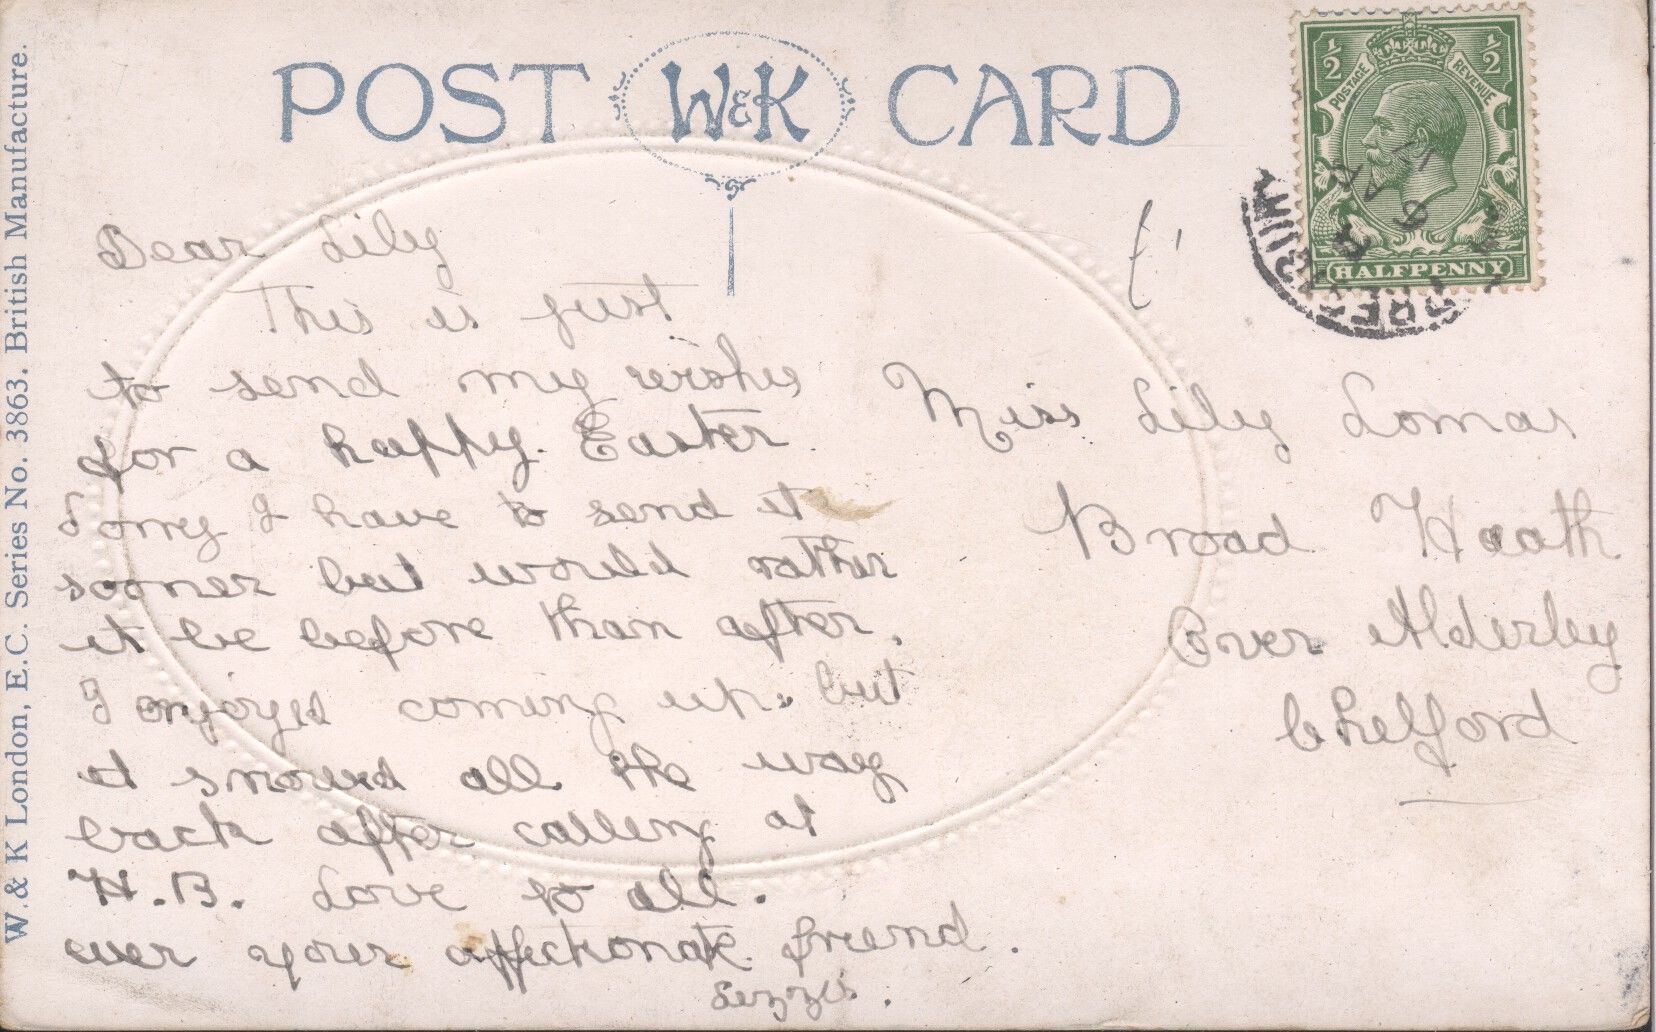 POST W&K CARD
W. & K London, E.C. Series No. 3863. British Manufacture.
1/2 1/2
POSTAGE REVENUE
HALFPENNY
Dear Lily
This is just
to send my wishes
for a happy. Easter
Sorry I have to send it
sooner but would rather
it be before than after.
I enjoyed coming up. but
it snowed all the way
back after calling at
H.B. Love to all.
ever your affectionate friend.
Lizzie.
Miss Lily Lomas
Broad Heath
Over Alderley
Chelford